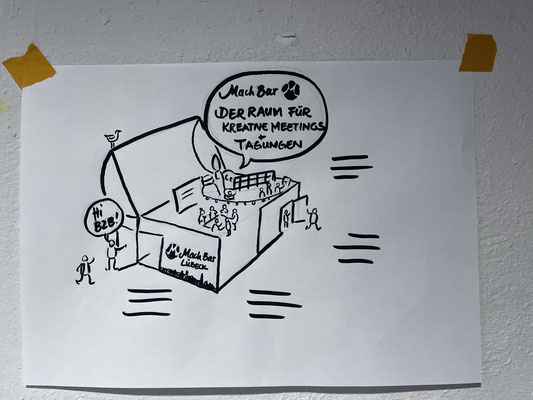 Mach Bar
DER RAUM FÜR
KREATIVE MEETINGS
+
TAGUNGEN
Hi
B2B!
Mach Bar
LÜBECK